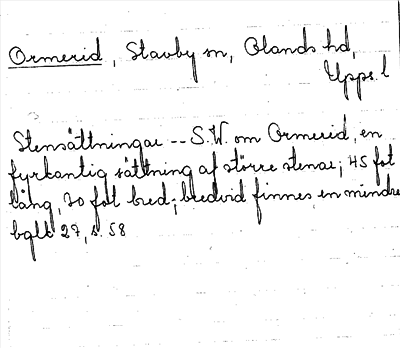 Ormerid, Stavby sn, Olands hd,
Upps. l
Stensättningar -- S.W. om Ormerid, en
fyrkantig sättning af större stenar; 45 fot
lång, 30 fot bred; bredvid finnes en mindre
bgls 27, s. 58